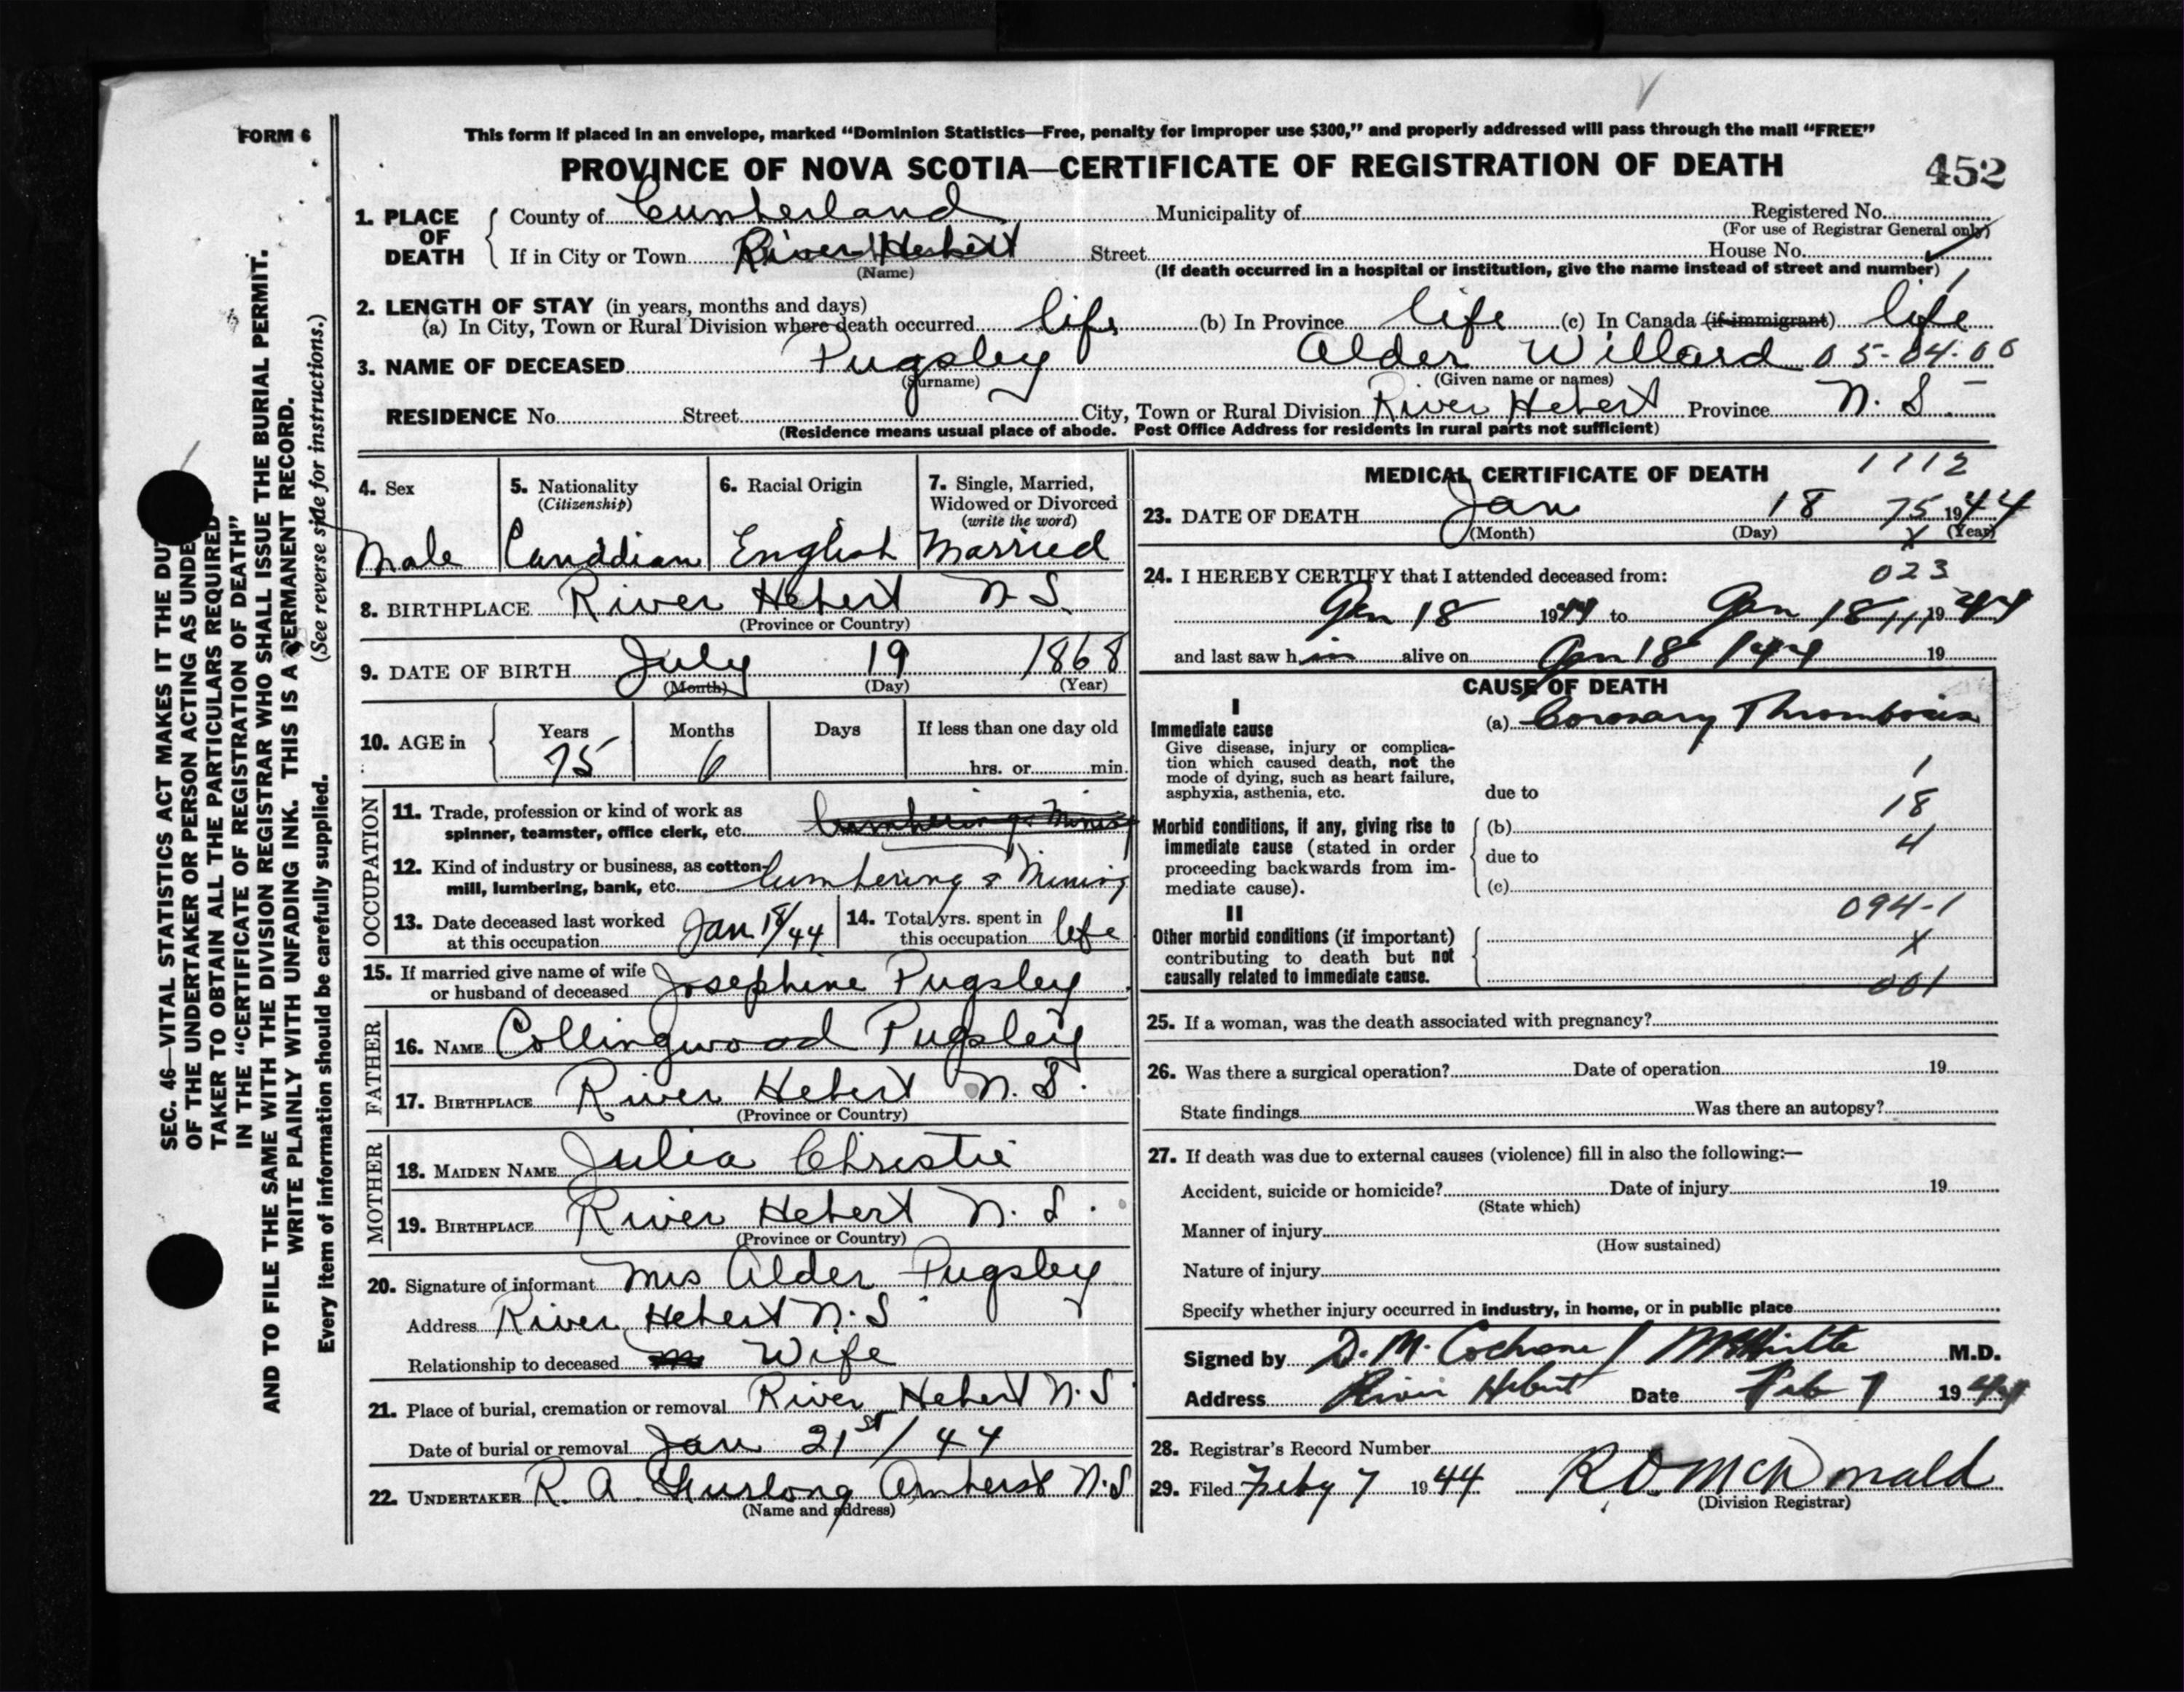 FORM 6
This form if placed in an envelope, marked “Dominion Statistics—Free, penalty for improper use $300,” and properly addressed will pass through the mail “FREE”
PROVINCE OF NOVA SCOTIA—CERTIFICATE OF REGISTRATION OF DEATH
452
1. PLACE OF DEATH
County of Cumberland Municipality of Registered No.
(For use of Registrar General only)
If in City or Town River Hebert Street House No.
(Name) (If death occurred in a hospital or institution, give the name instead of street and number)
2. LENGTH OF STAY (in years, months and days)
(a) In City, Town or Rural Division where death occurred life (b) In Province life (c) In Canada (if immigrant) life
3. NAME OF DECEASED Pugsley Alder Willard 05-04-00
(Surname) (Given name or names)
RESIDENCE No. Street City, Town or Rural Division River Hebert Province N. S.
(Residence means usual place of abode. Post Office Address for residents in rural parts not sufficient)
4. Sex
Male
5. Nationality
(Citizenship)
Canadian
6. Racial Origin
English
7. Single, Married,
Widowed or Divorced
(write the word)
Married
8. BIRTHPLACE River Hebert N S.
(Province or Country)
9. DATE OF BIRTH July 19 1868
(Month) (Day) (Year)
10. AGE in
Years Months Days If less than one day old
75 6 hrs. or min.
OCCUPATION
11. Trade, profession or kind of work as
spinner, teamster, office clerk, etc. Lumbering & Mining
12. Kind of industry or business, as cotton-
mill, lumbering, bank, etc. Lumbering & Mining
13. Date deceased last worked
at this occupation Jan 18/44
14. Total yrs. spent in
this occupation life
15. If married give name of wife
or husband of deceased Josephine Pugsley
FATHER
16. NAME Collingwood Pugsley
17. BIRTHPLACE River Hebert N. S.
(Province or Country)
MOTHER
18. MAIDEN NAME Julia Christie
19. BIRTHPLACE River Hebert N. S.
(Province or Country)
20. Signature of informant Mrs Alder Pugsley
Address River Hebert N. S
Relationship to deceased Wife
21. Place of burial, cremation or removal River Hebert N. S
Date of burial or removal Jan 21st/44
22. UNDERTAKER R. A. Amherst N.S
(Name and address)
MEDICAL CERTIFICATE OF DEATH 1112
23. DATE OF DEATH Jan 18 75 1944
(Month) (Day) X (Year)
24. I HEREBY CERTIFY that I attended deceased from: 023
Jan 18 1944 to Jan 18 111 1944
and last saw him alive on Jan 18 / 44 19
CAUSE OF DEATH
I
Immediate cause
Give disease, injury or complica-
tion which caused death, not the
mode of dying, such as heart failure,
asphyxia, asthenia, etc.
(a) Coronary Thrombosis
1
due to
18
Morbid conditions, if any, giving rise to
immediate cause (stated in order
proceeding backwards from im-
mediate cause).
(b)
4
due to
(c)
094-1
II
Other morbid conditions (if important)
contributing to death but not
causally related to immediate cause.
X
001
25. If a woman, was the death associated with pregnancy?
26. Was there a surgical operation? Date of operation 19
State findings Was there an autopsy?
27. If death was due to external causes (violence) fill in also the following:—
Accident, suicide or homicide? Date of injury 19
(State which)
Manner of injury
(How sustained)
Nature of injury
Specify whether injury occurred in industry, in home, or in public place
Signed by D. M. Cochrane / M.D.
Address River Hebert Date Feb 7 1944
28. Registrar's Record Number
29. Filed Feby 7 1944 R.D. McDonald
(Division Registrar)
SEC. 46—VITAL STATISTICS ACT MAKES IT THE DU
OF THE UNDERTAKER OR PERSON ACTING AS UNDE
TAKER TO OBTAIN ALL THE PARTICULARS REQUIRED
IN THE “CERTIFICATE OF REGISTRATION OF DEATH”
AND TO FILE THE SAME WITH THE DIVISION REGISTRAR WHO SHALL ISSUE THE BURIAL PERMIT.
WRITE PLAINLY WITH UNFADING INK. THIS IS A PERMANENT RECORD.
Every item of information should be carefully supplied. (See reverse side for instructions.)